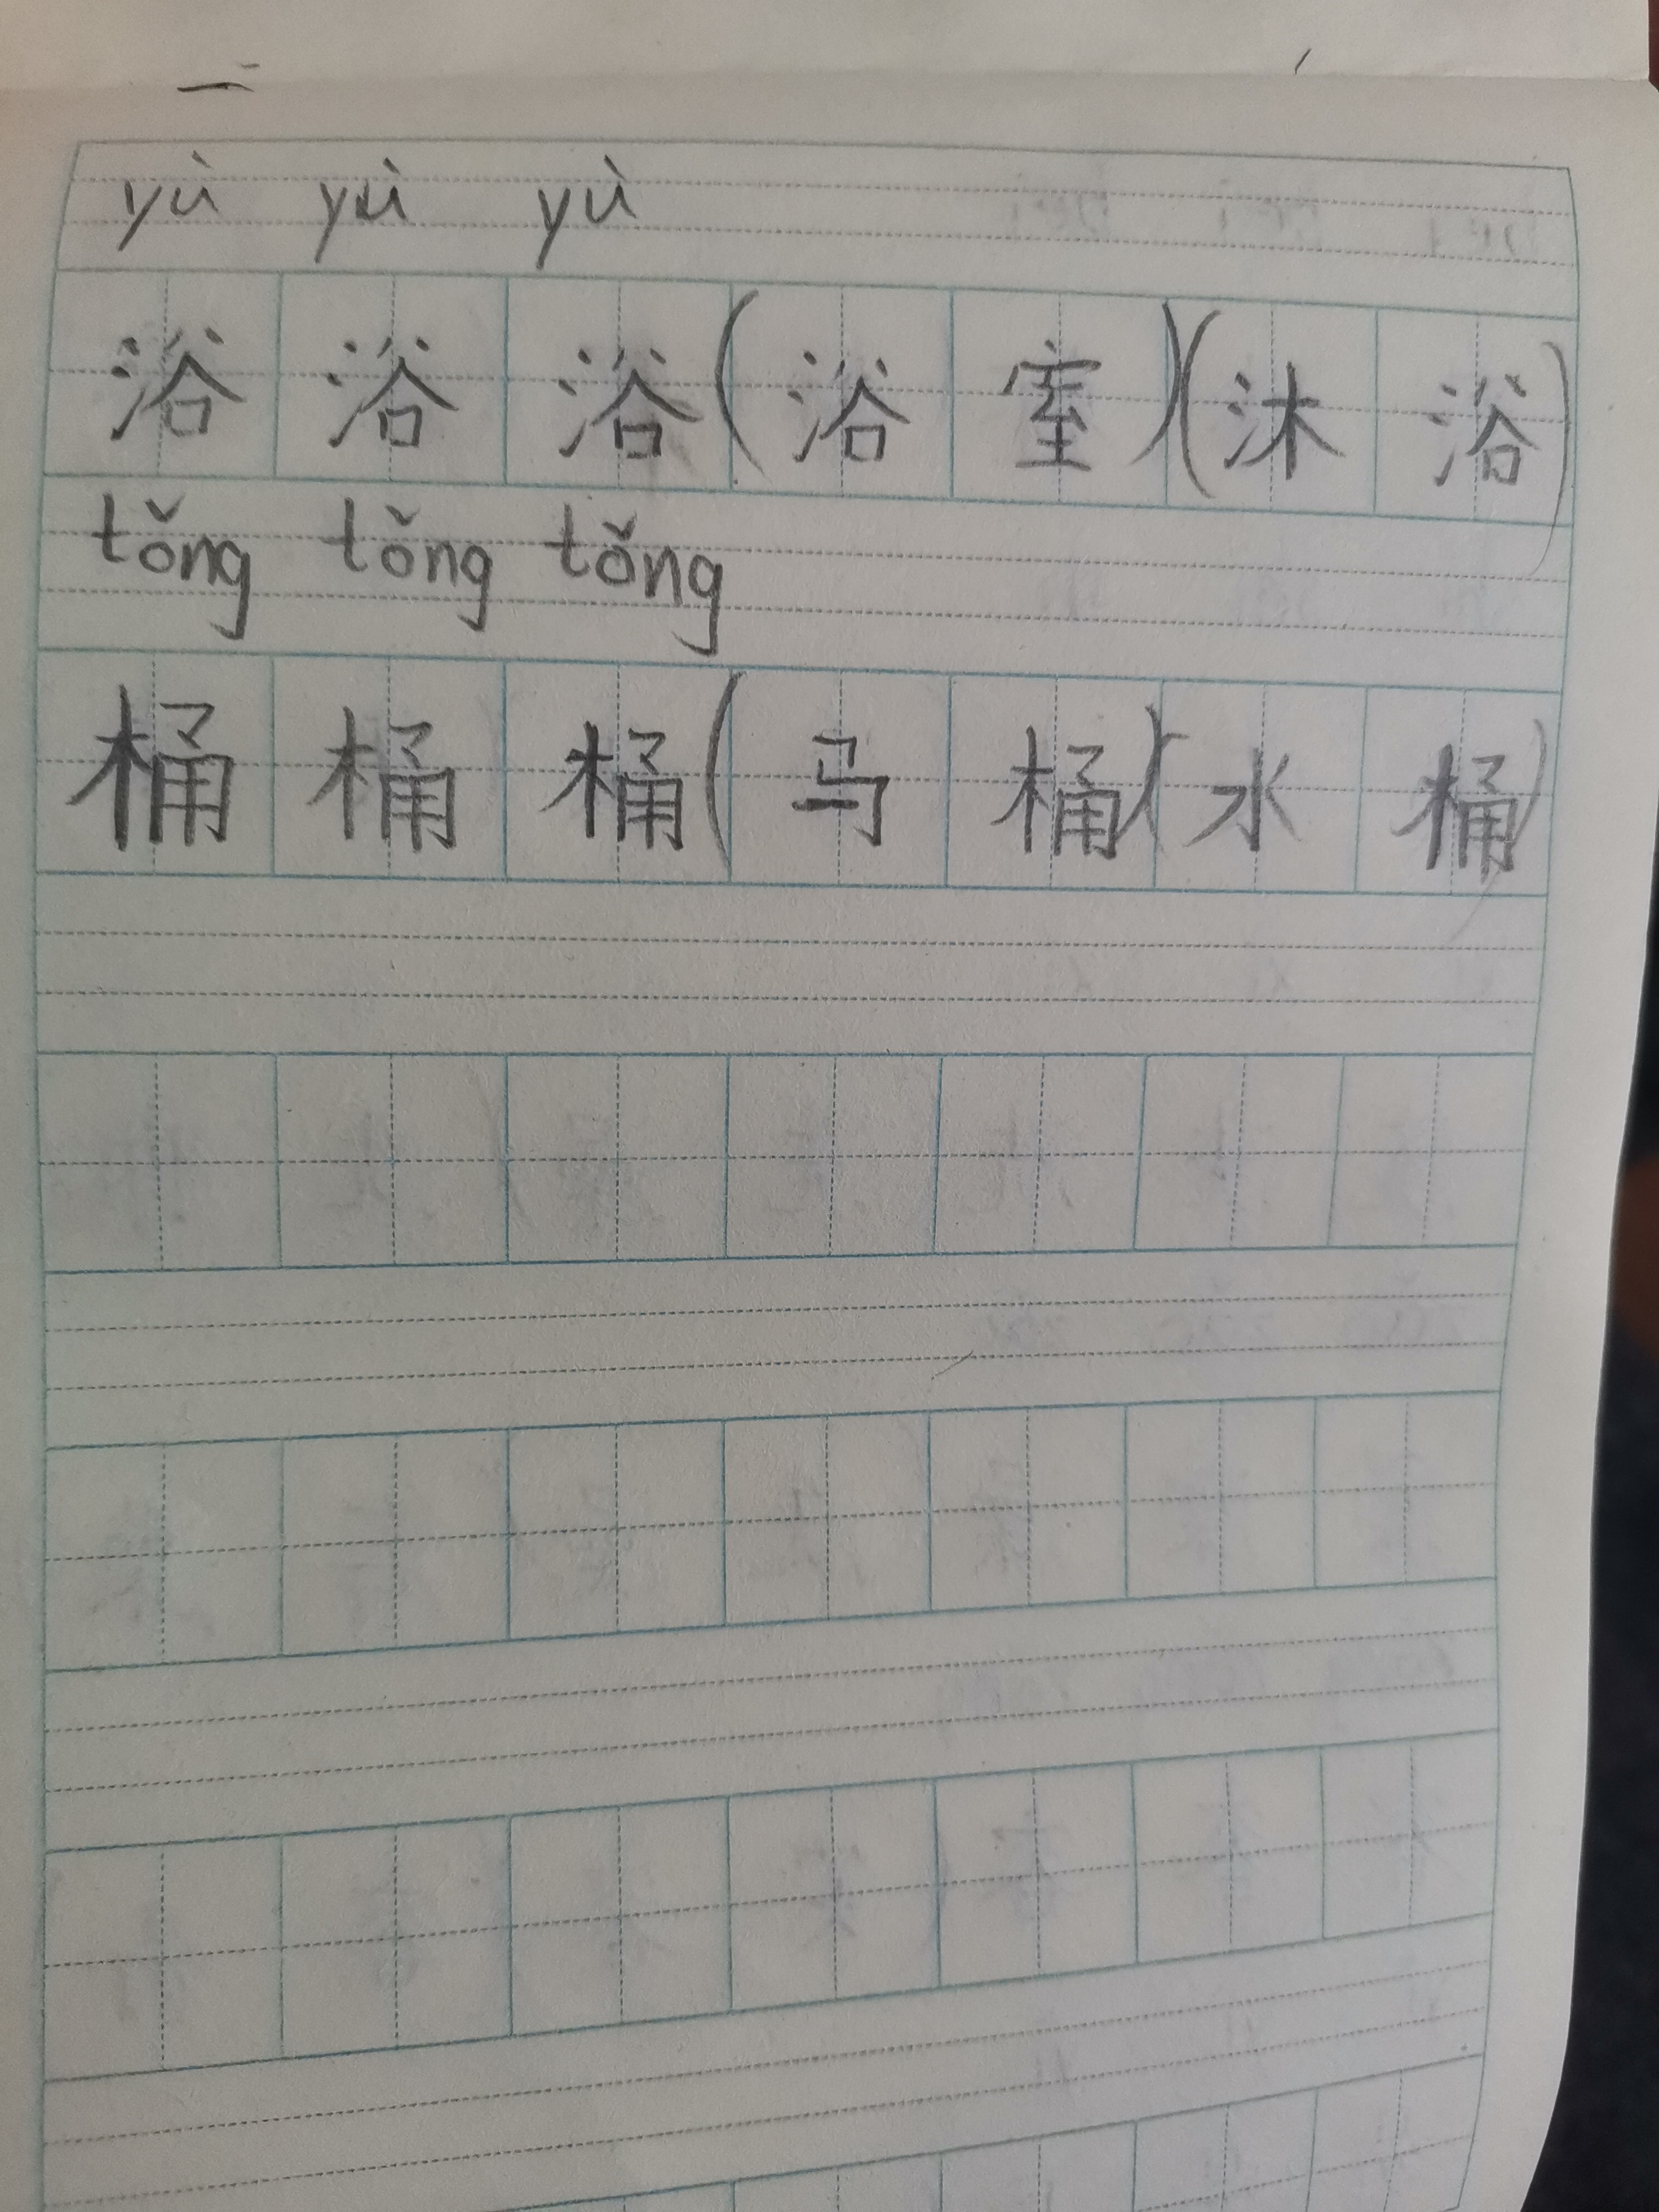 yù yù yù
浴浴浴(浴室)(沐浴)
tǒng tǒng tǒng
桶桶桶(马桶)(水桶)